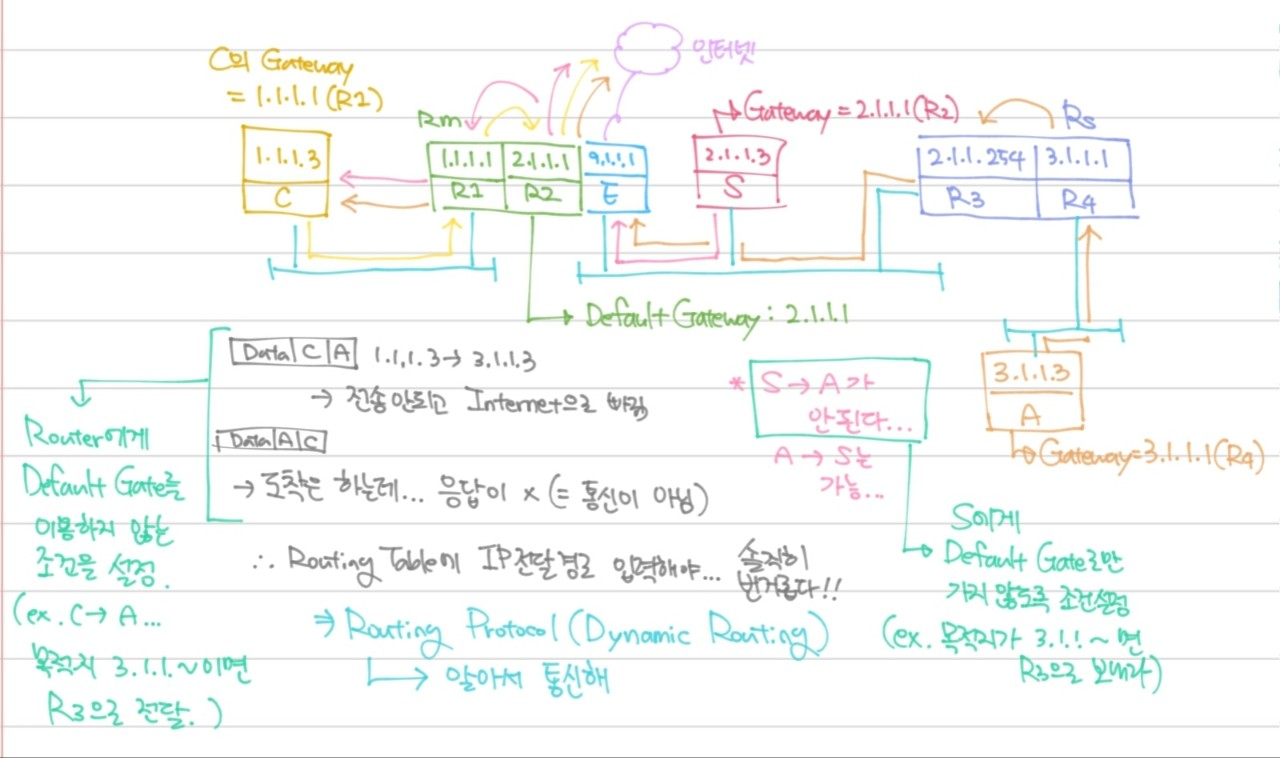 C의 Gateway
= 1.1.1.1(R1)
인터넷
Gateway = 2.1.1.1(R2)
Rm
Rs
1.1.1.3
C
1.1.1.1
2.1.1.1
9.1.1.1
R1
R2
E
2.1.1.3
S
2.1.1.254
3.1.1.1
R3
R4
Default Gateway : 2.1.1.1
Data|C|A 1.1.1.3 → 3.1.1.3
→ 전송안되고 Internet으로 빠짐
Data|A|C
→ 도착은 하는데... 응답이 × (= 통신이 아님)
∴ Routing Table에 IP전달경로 입력해야... 솔직히
번거롭다!!
⇒ Routing Protocol (Dynamic Routing)
→ 알아서 통신해
Router에게
Default Gate를
이용하지 않는
조건을 설정.
(ex. C → A...
목적지 3.1.1.~이면
R3으로 전달.)
* S → A가
안된다...
A → S는
가능...
3.1.1.3
A
Gateway=3.1.1.1(R4)
S에게
Default Gate로만
가지 않도록 조건설정
(ex. 목적지가 3.1.1.~면
R3으로 보내라)